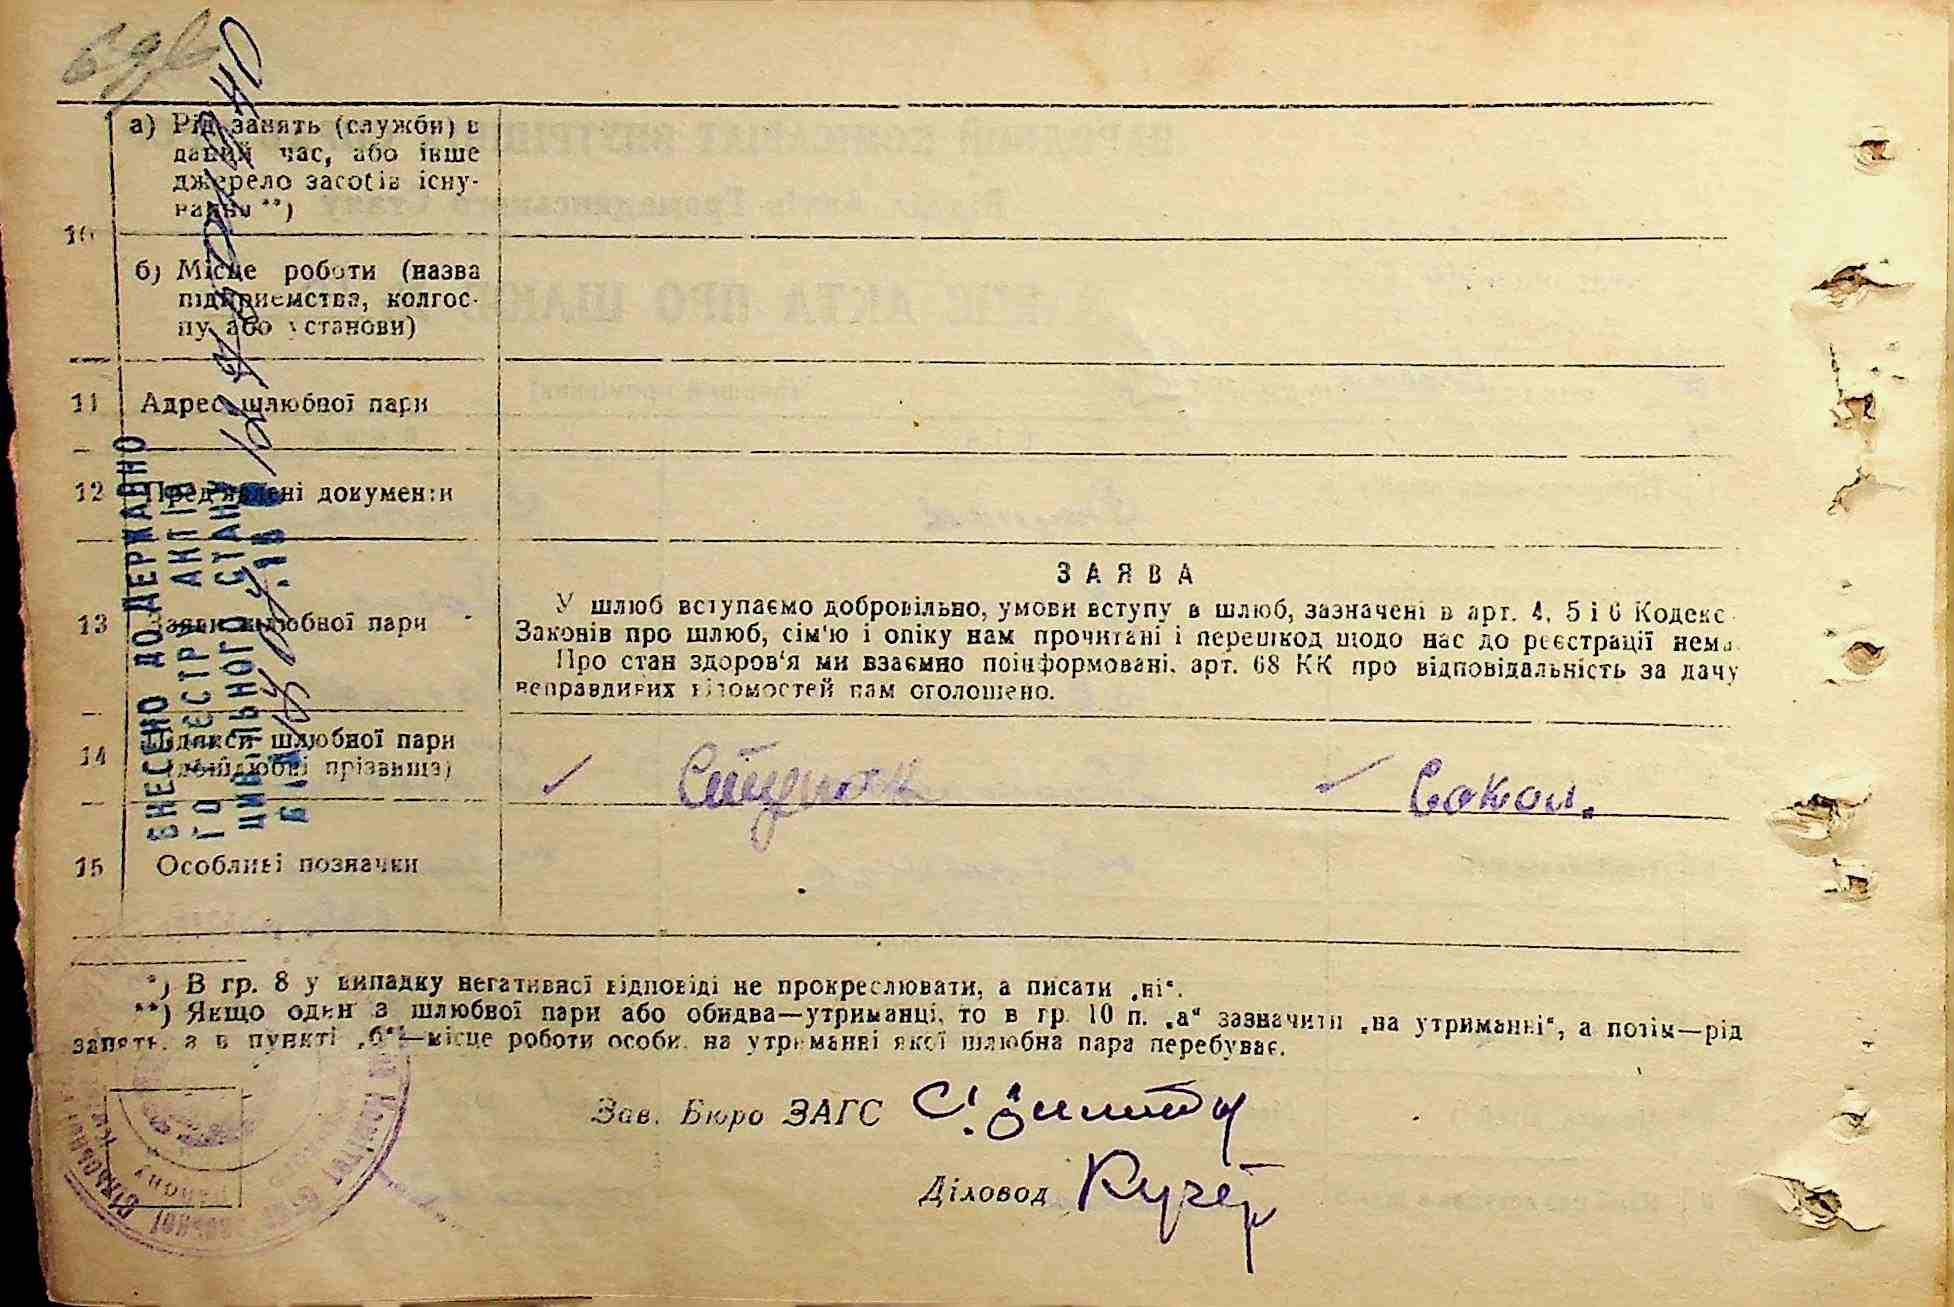 а) Рід занять (служби) в
даний час, або інше
джерело засобів існу-
вання **)
10
б) Місце роботи (назва
підприємства, колгос-
пу або установи)
11 Адрес шлюбної пари
12 Пред'явлені документи
ЗАЯВА
У шлюб вступаємо добровільно, умови вступу в шлюб, зазначені в арт. 4, 5 і 6 Кодекс
13 Заяви шлюбної пари
Законів про шлюб, сім'ю і опіку нам прочитані і перешкод щодо нас до реєстрації нема
Про стан здоров'я ми взаємно поінформовані, арт. 68 КК про відповідальність за дачу
неправдивих відомостей нам оголошено.
14 Підписи шлюбної пари
(дошлюбні прізвища)
Сокол.
15 Особливі позначки
*) В гр. 8 у випадку негативної відповіді не прокреслювати, а писати „ні“.
**) Якщо один з шлюбної пари або обидва—утриманці, то в гр. 10 п. „а“ зазначити „на утриманні“, а потім—рід
занять, а в пункті „б“—місце роботи особи, на утриманні якої шлюбна пара перебуває.
Зав. Бюро ЗАГС
Діловод Кучер
ВНЕСЕНО ДО ДЕРЖАВНО
ГО РЕЄСТРУ АКТІВ
ЦИВІЛЬНОГО СТАНУ